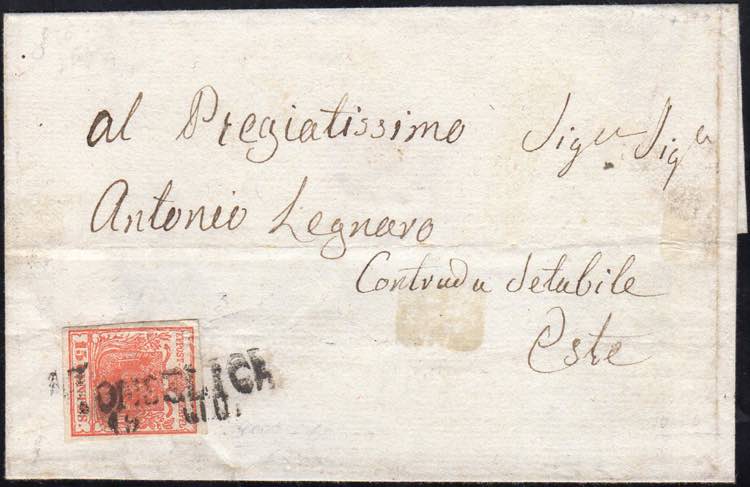 al Pregiatissimo Sigr Sigr
Antonio Legnaro
Contrada Setabile
Este
15
MONSELICE
15 GIU